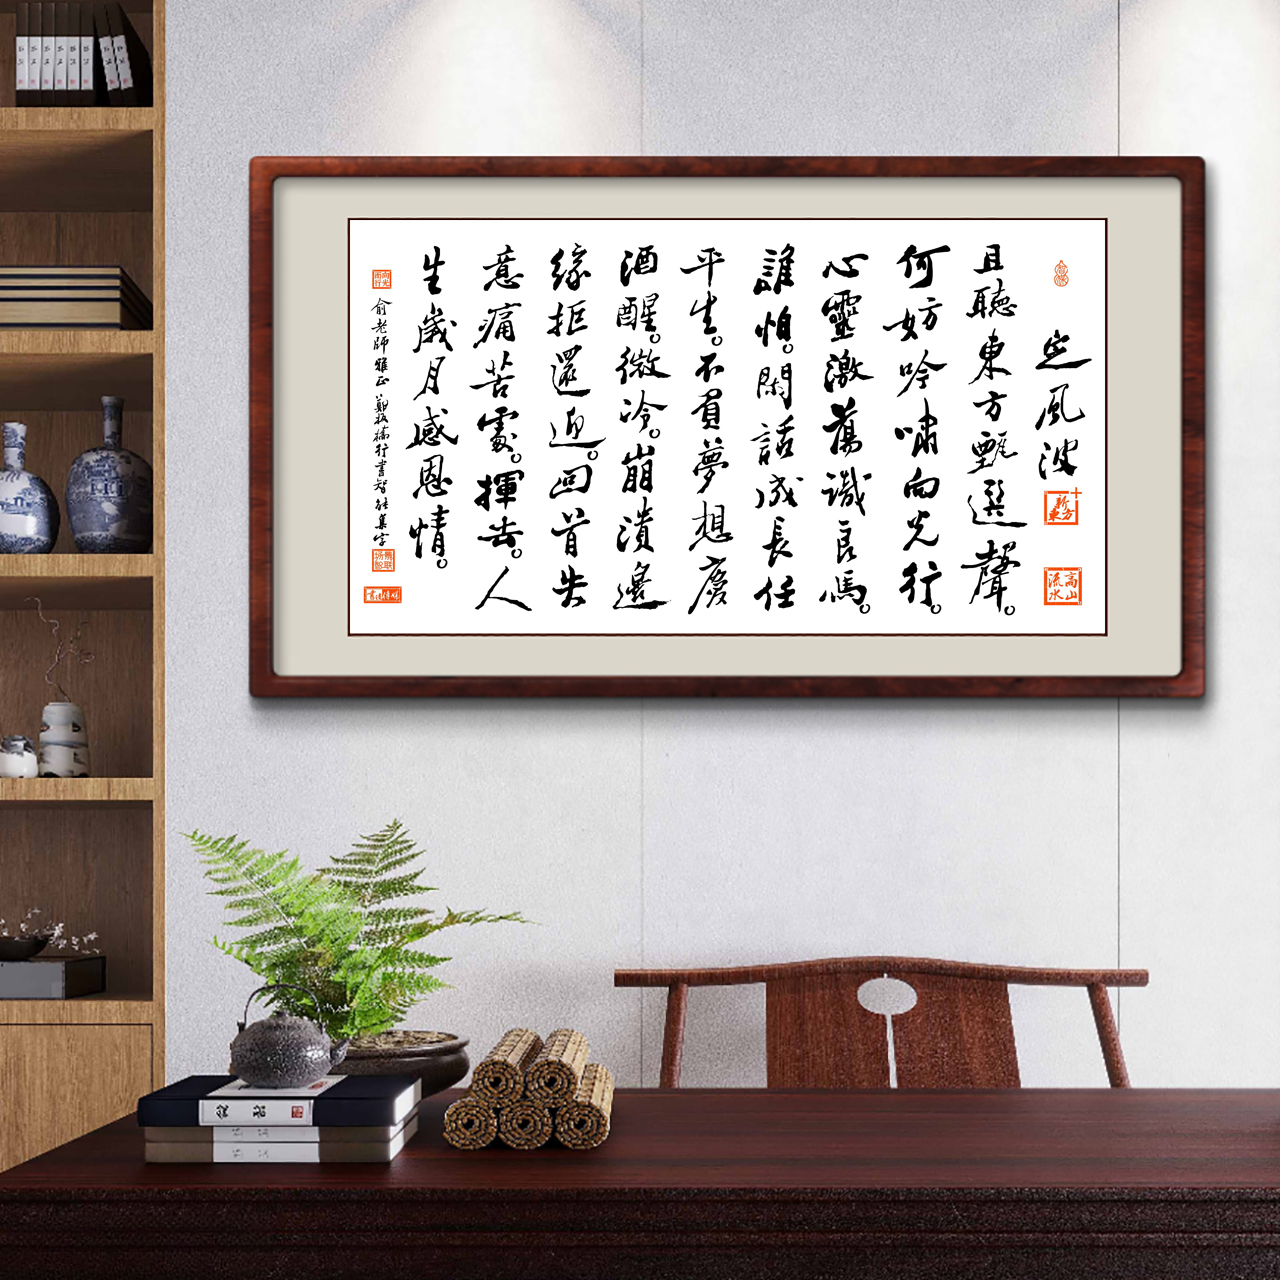 定風波
新東方
高山流水
且聽東方甄選聲。
何妨吟嘯向光行。
心靈激蕩識良馬。
誰怕。閑話成長任
平生。不負夢想慶
酒醒。微冷。崩潰邊
緣拒還迎。回首失
意痛苦處。揮去。人
生歲月感恩情。
俞老師雅正 鄭板橋行書智能集字